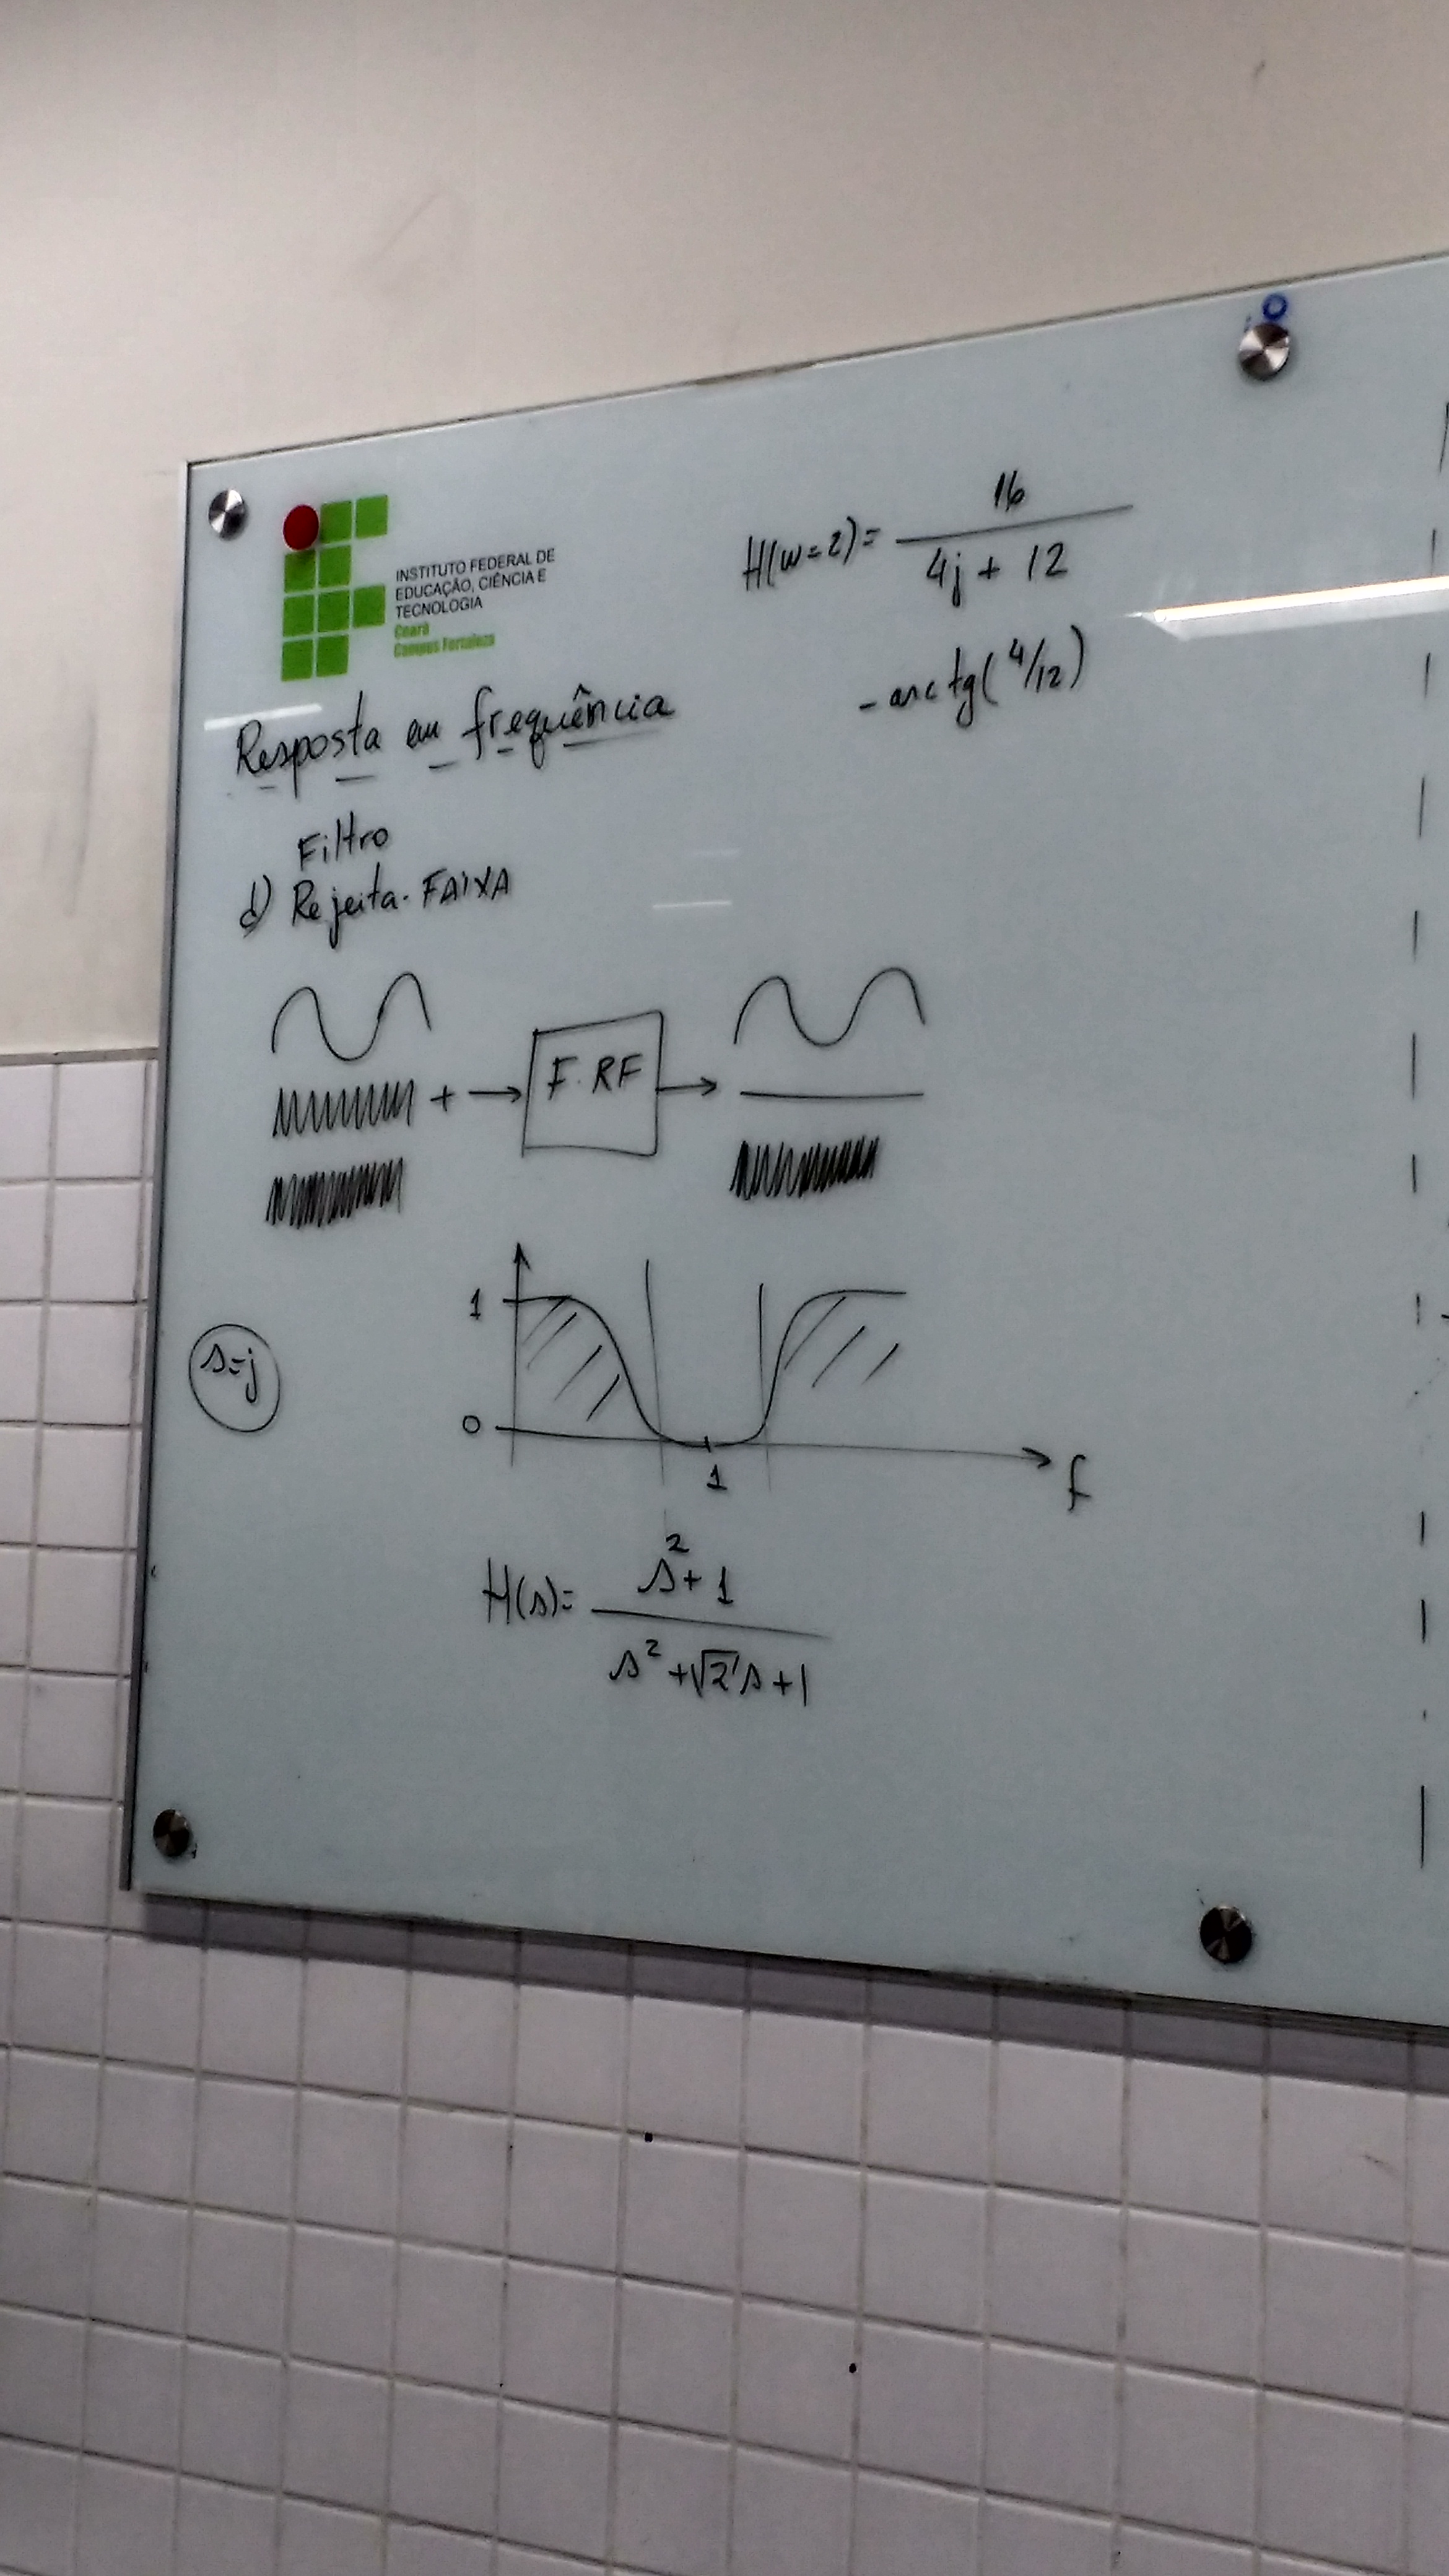 INSTITUTO FEDERAL DE
EDUCAÇÃO, CIÊNCIA E
TECNOLOGIA
Ceará
Campus Fortaleza
H(w=2)= 16 / (4j + 12)
-arctg(4/12)
Resposta em frequência
Filtro
d) Rejeita-FAIXA
+ → F.RF →
1
s=j
0
1
f
H(s)= (s²+1) / (s²+√2 s+1)